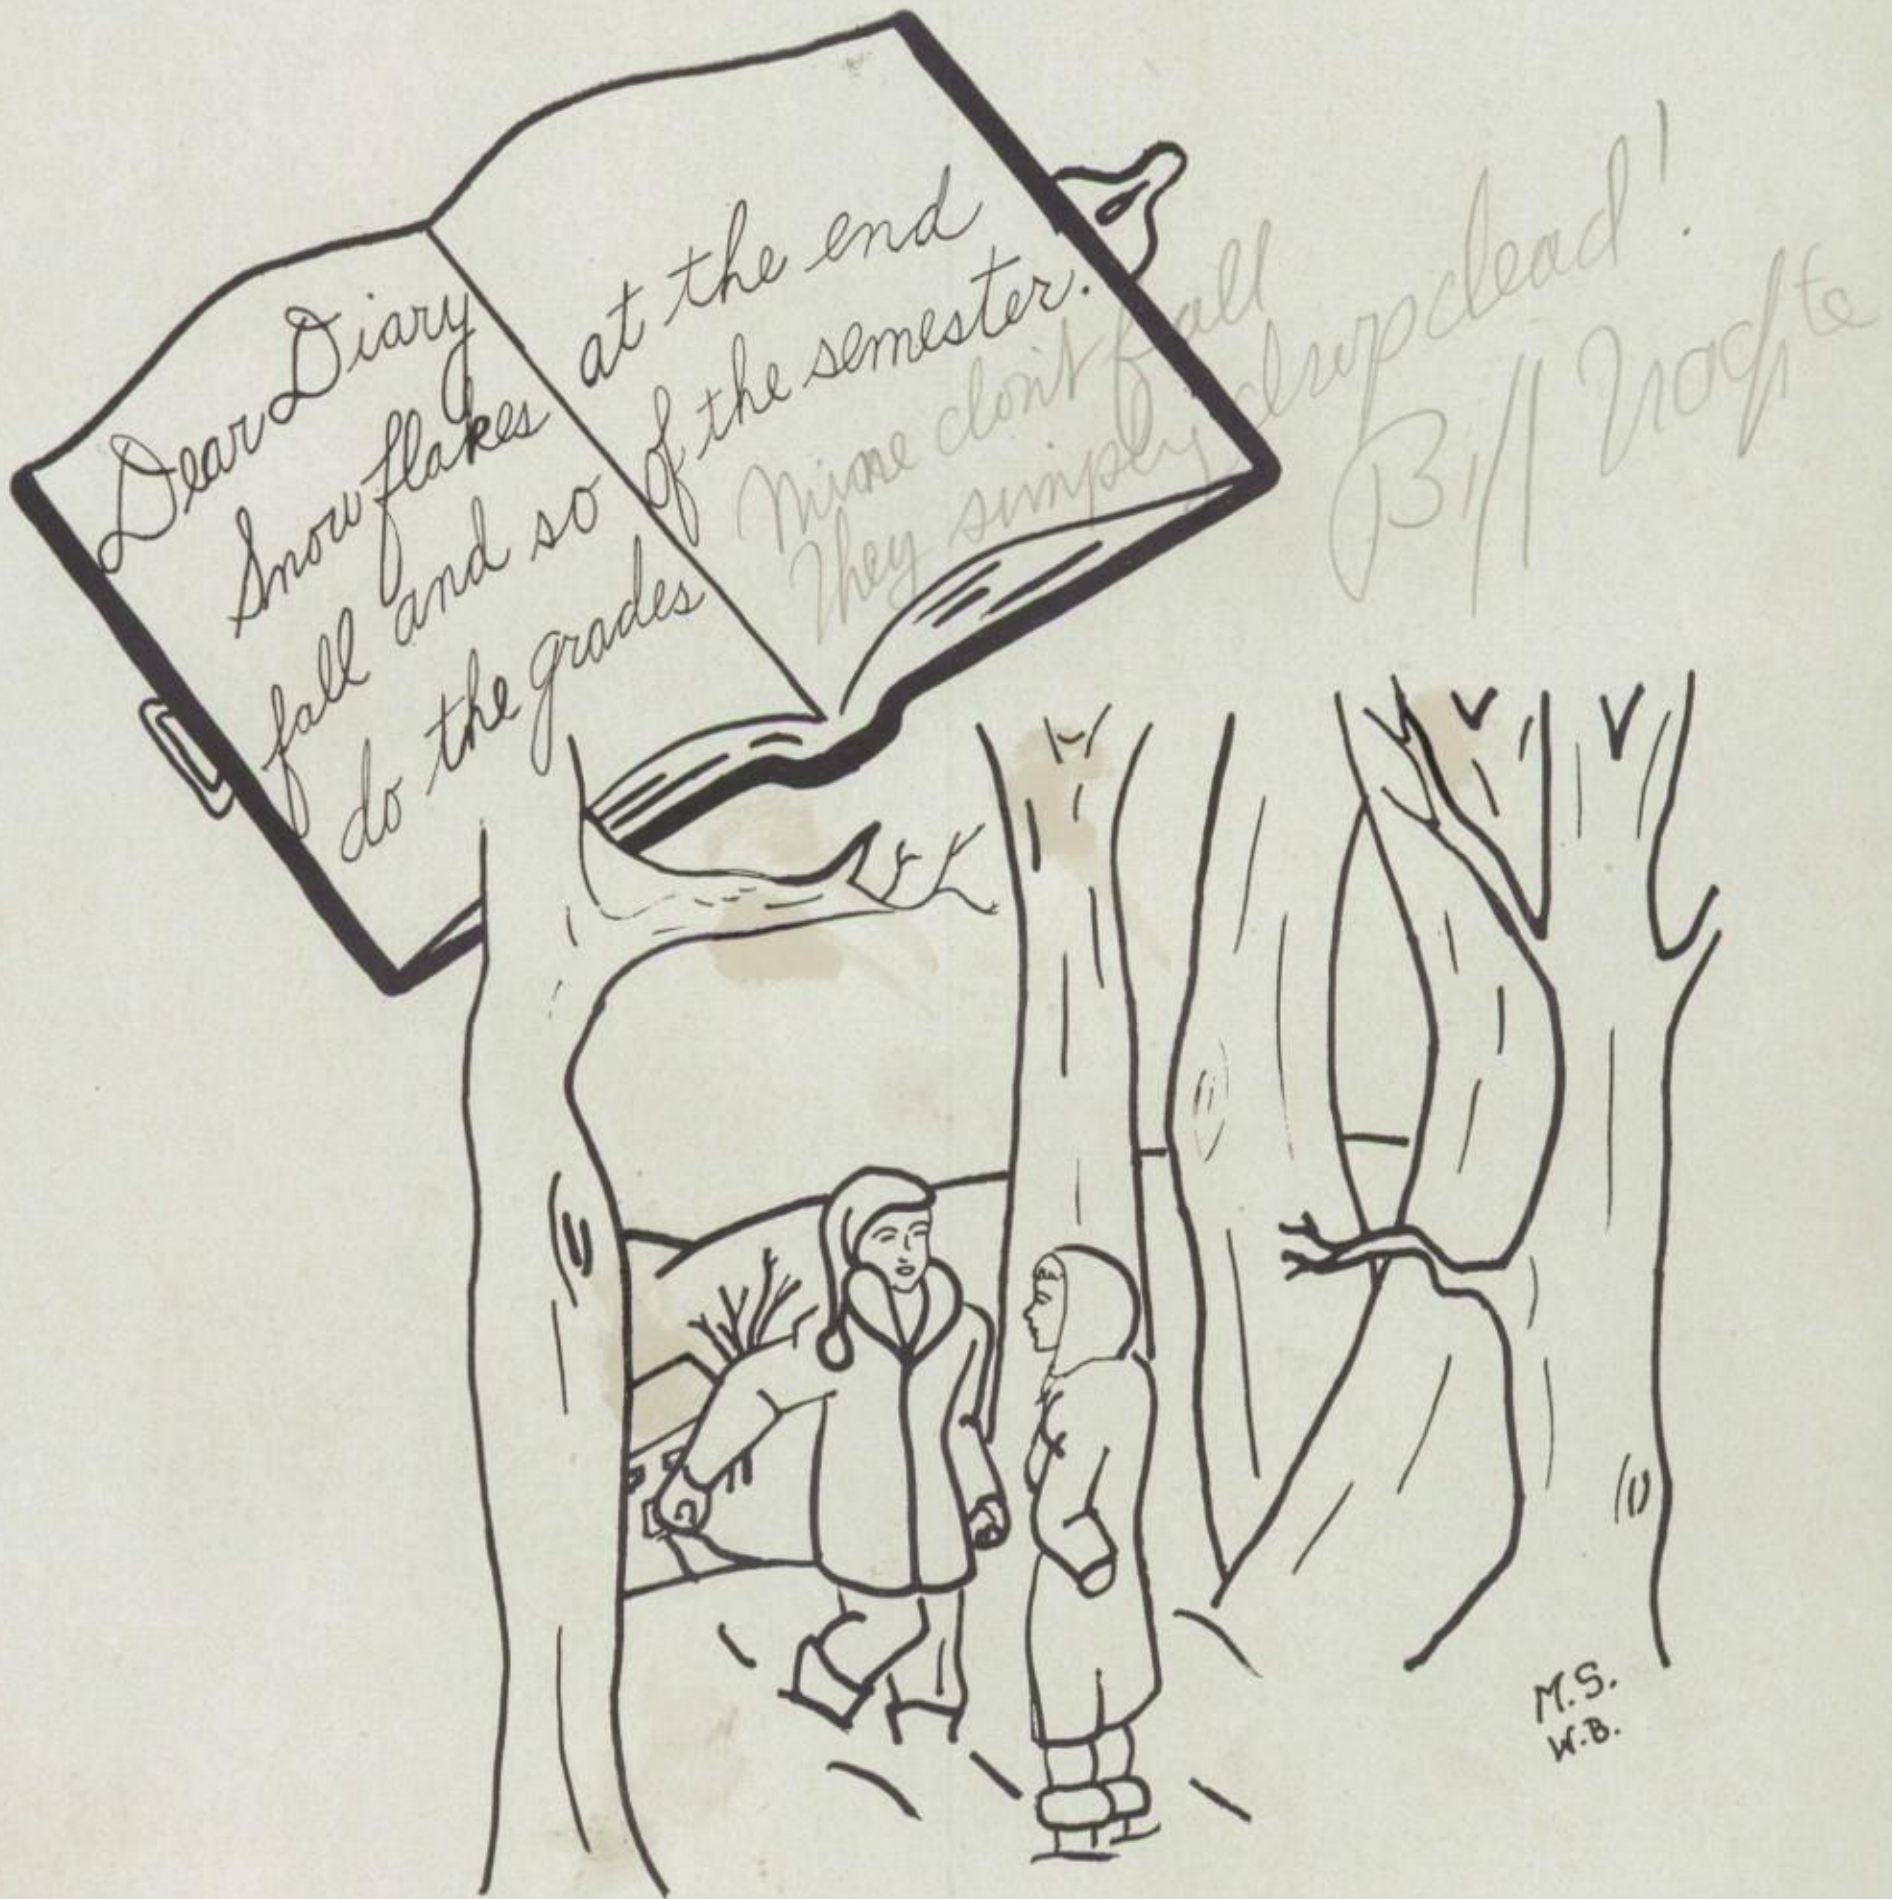 Dear Diary
Snowflakes
fall and so
do the grades
at the end
of the semester.
Mine don't fall
They simply drop dead!
Bill
M.S.
W.B.